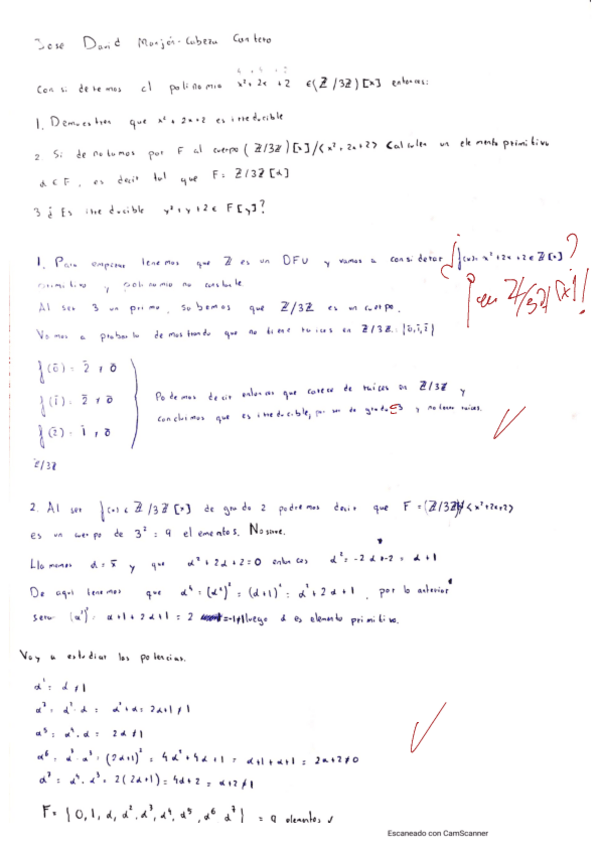 Jose David Monjas-Cabeza Cantero
Consideremos el polinomio x² + 2x + 2 ∈ (Z/3Z)[x] entonces:
1. Demuestren que x² + 2x + 2 es irreducible
2 Si denotamos por F al cuerpo (Z/3Z)[x]/<x² + 2x + 2> Calculen un elemento primitivo
α ∈ F, es decir tal que F = Z/3Z[α]
3 ¿Es irreducible y² + y + 2 ∈ F[y]?
1. Para empezar tenemos que Z es un DFU y vamos a considerar f(x) = x² + 2x + 2 ∈ Z[x] ?
primitivo y polinomio no constante
¡ en Z/3Z [x] !
Al ser 3 un primo, sabemos que Z/3Z es un cuerpo.
Vamos a probarlo demostrando que no tiene raices en Z/3Z: {0̄, 1̄, 2̄}
f(0̄) = 2̄ ≠ 0̄
f(1̄) = 2̄ ≠ 0̄
f(2̄) = 1̄ ≠ 0̄
Podemos decir entonces que carece de raices en Z/3Z y
concluimos que es irreducible, por ser de grado ≤3 y no tener raices.
Z/3Z
2. Al ser f(x) ∈ Z/3Z [x] de grado 2 podremos decir que F = (Z/3Z)/<x²+2x+2>
es un cuerpo de 3² = 9 elementos.
Llamamos α = x̄ y que α² + 2α + 2 = 0 entonces α² = -2α - 2 = α + 1
De aqui tenemos que α⁴ = (α²)² = (α+1)² = α² + 2α + 1, por lo anterior
sera (α²)² = α + 1 + 2α + 1 = 2 = -1 ≠ 1 luego α es elemento primitivo.
Voy a estudiar las potencias.
α¹ = α ≠ 1
α³ = α² · α = α² + α = 2α + 1 ≠ 1
α⁵ = α⁴ · α = 2α ≠ 1
α⁶ = α³ · α³ = (2α+1)² = 4α² + 4α + 1 = α + 1 + α + 1 = 2α + 2 ≠ 0
α⁷ = α⁴ · α³ = 2(2α+1) = 4α + 2 = α + 2 ≠ 1
F = {0, 1, α, α², α³, α⁴, α⁵, α⁶, α⁷} = 9 elementos
Escaneado con CamScanner